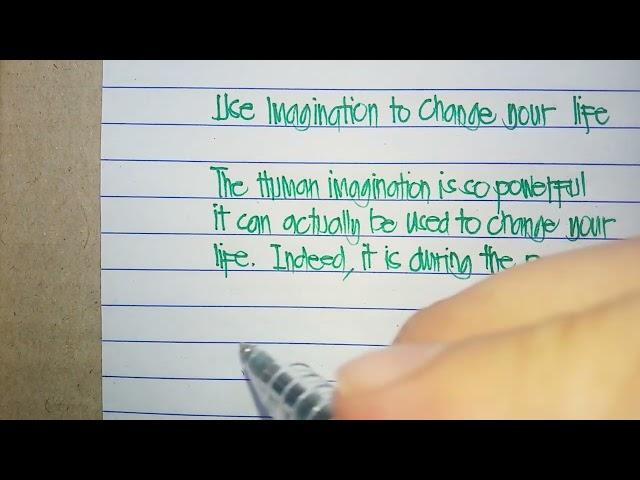 Use Imagination to change your life
The Human imagination is so powerful
it can actually be used to change your
life. Indeed, it is during the